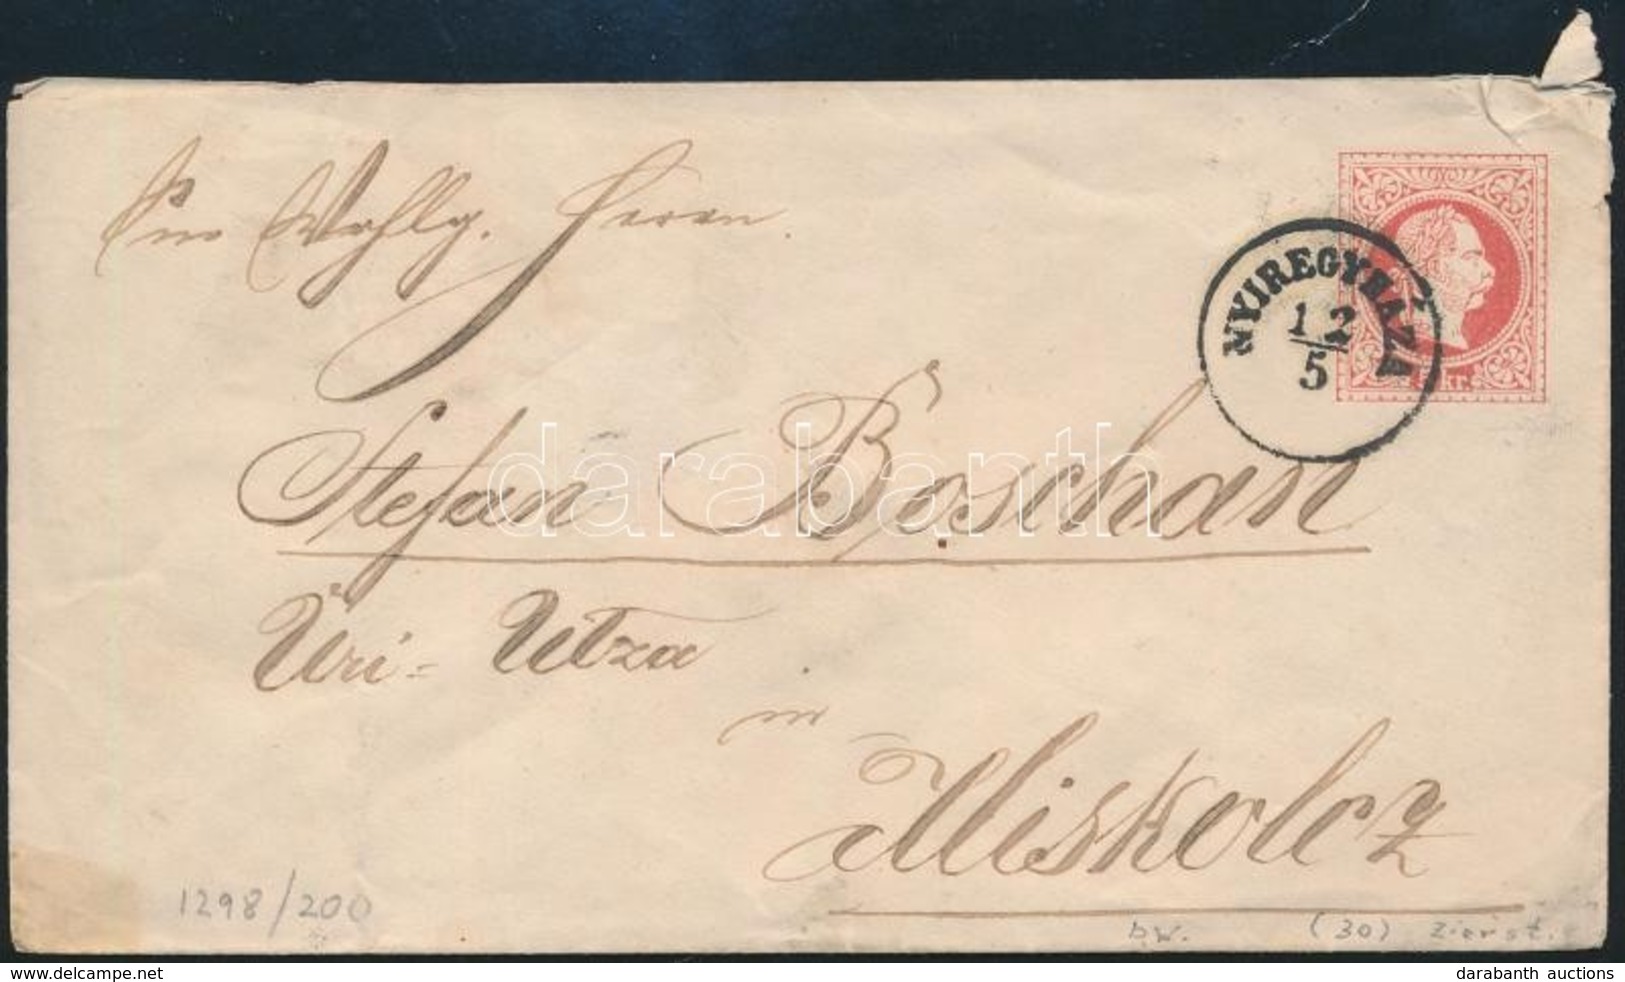 Sr Wohlg. Herrn.
NYIREGYHÁZA
12/5
KR.
Stefan Boschan
darabanth
Uri-Utza
in
Miskolcz
1298/200
b.w. (30) Zierst.
delcampe.net
darabanth auctions